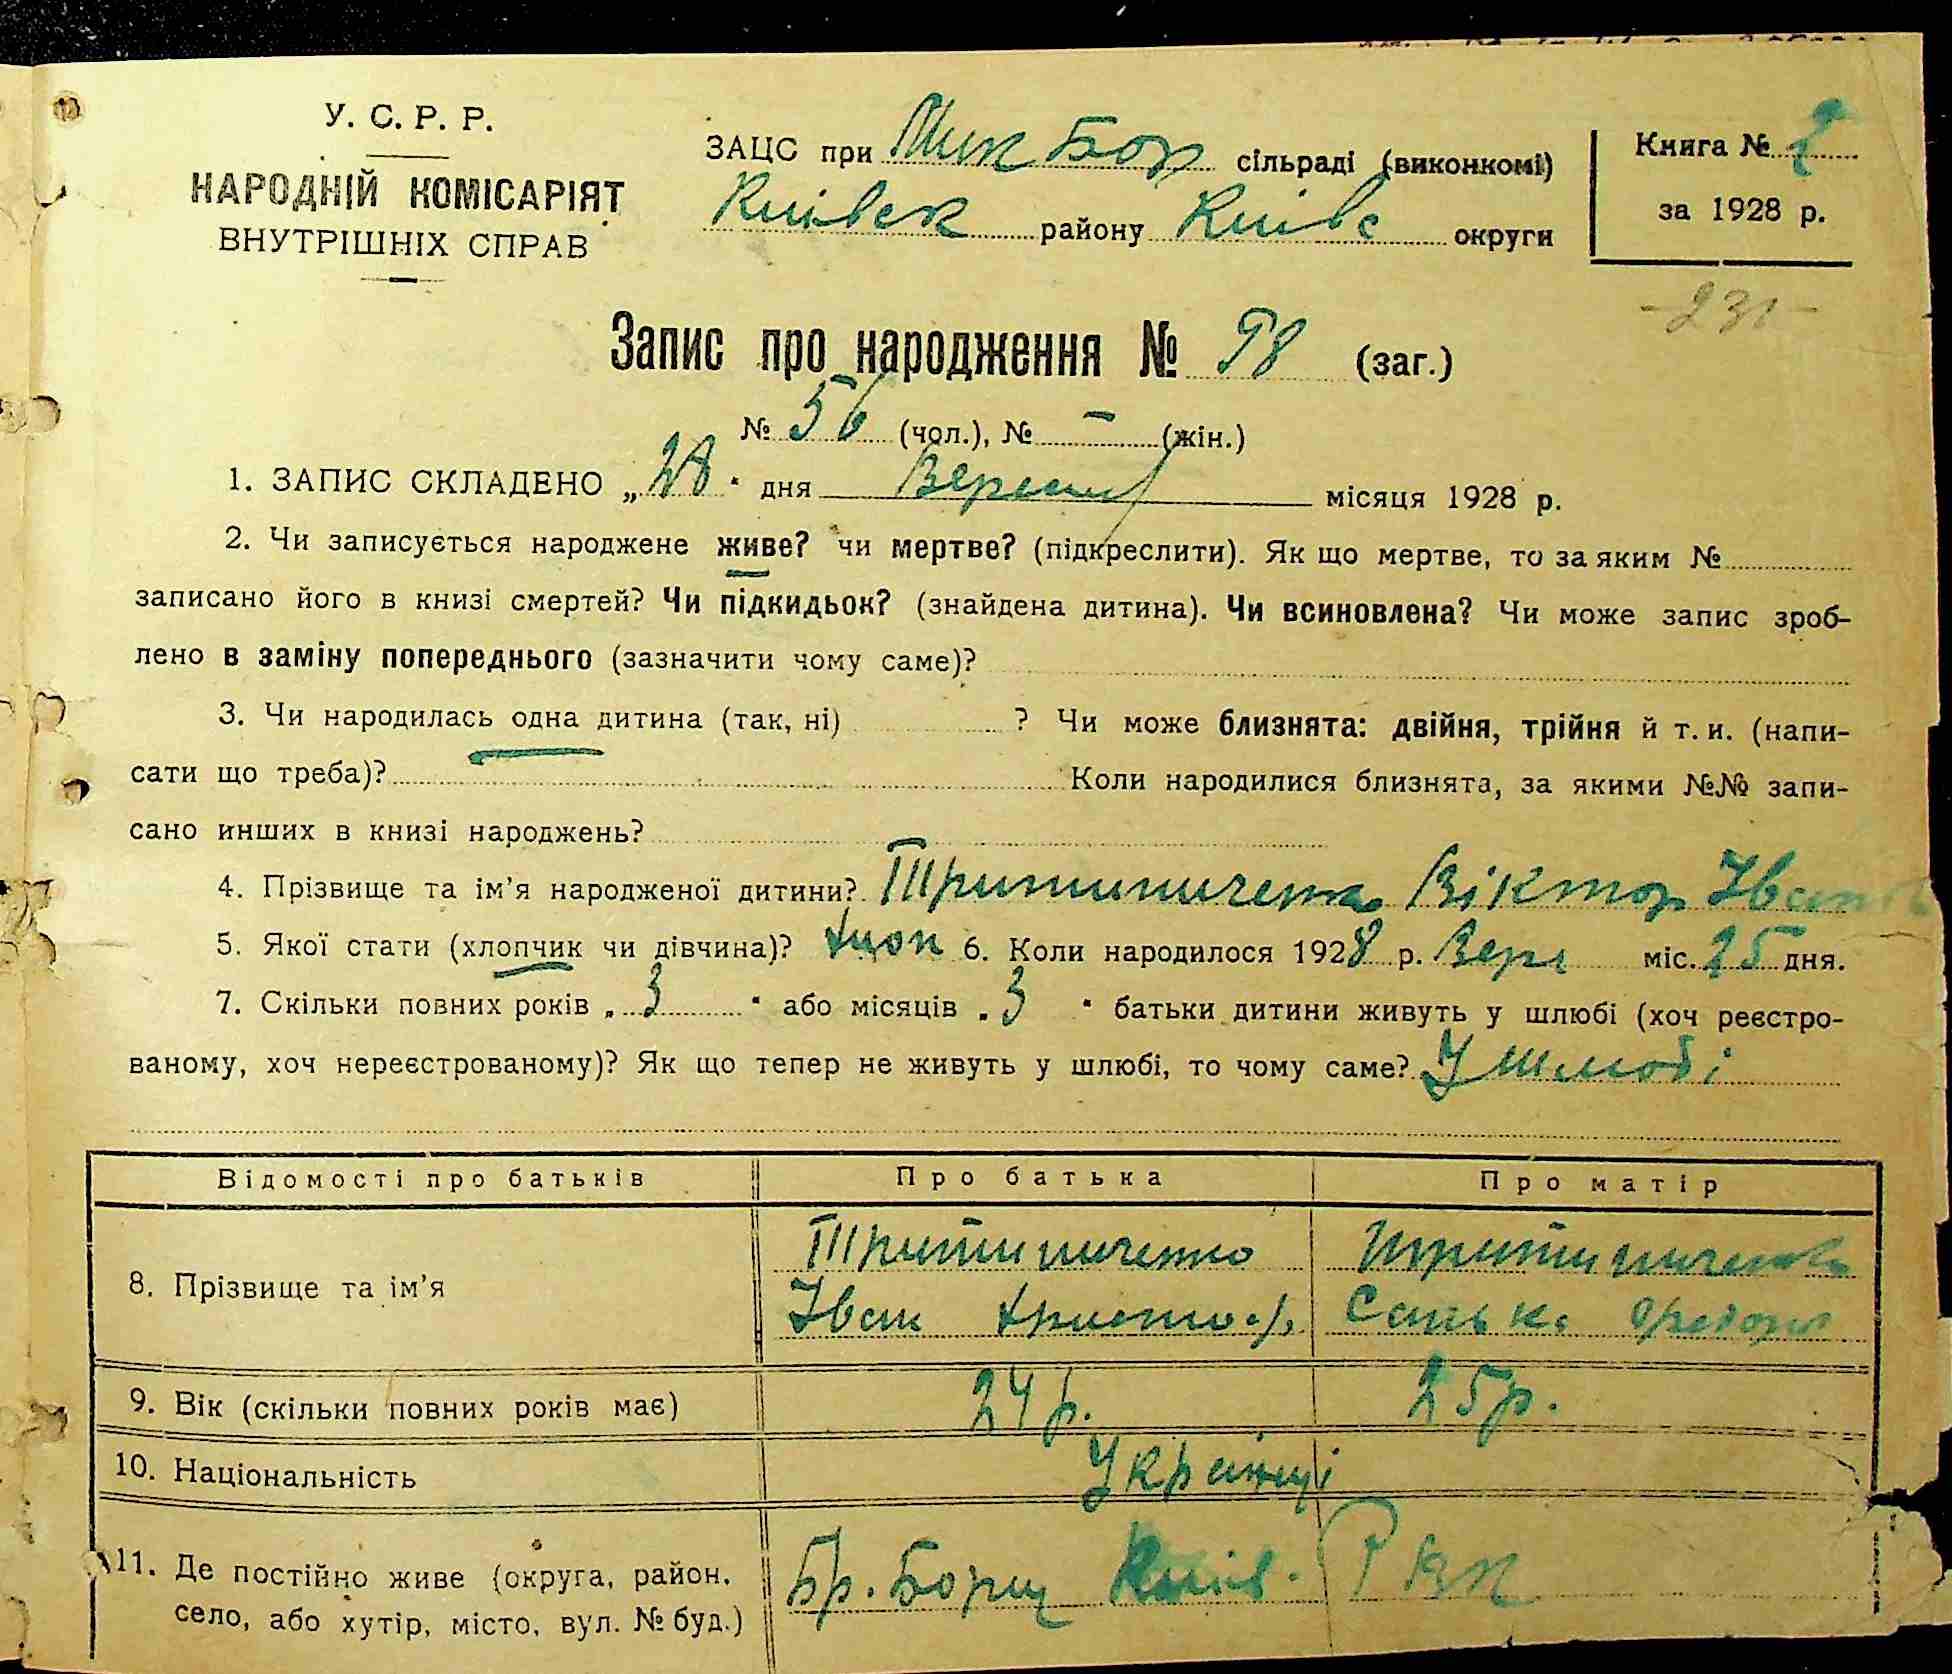 У. С. Р. Р.
НАРОДНІЙ КОМІСАРІЯТ
ВНУТРІШНІХ СПРАВ
ЗАЦС при Мик Бор сільраді (виконкомі)
Київськ району Київс округи
Книга №
за 1928 р.
-231-
Запис про народження № 98 (заг.)
№ 56 (чол.), № – (жін.)
1. ЗАПИС СКЛАДЕНО „28" дня Вересня місяця 1928 р.
2. Чи записується народжене живе? чи мертве? (підкреслити). Як що мертве, то за яким №
записано його в книзі смертей? Чи підкидьок? (знайдена дитина). Чи всиновлена? Чи може запис зроб-
лено в заміну попереднього (зазначити чому саме)?
3. Чи народилась одна дитина (так, ні) ? Чи може близнята: двійня, трійня й т. и. (напи-
сати що треба)? Коли народилися близнята, за якими №№ запи-
сано инших в книзі народжень?
4. Прізвище та ім'я народженої дитини? Віктор Іван
5. Якої стати (хлопчик чи дівчина)? Хлоп 6. Коли народилося 1928 р. Вер міс. 25 дня.
7. Скільки повних років „3" або місяців „3" батьки дитини живуть у шлюбі (хоч реєстро-
ваному, хоч нереєстрованому)? Як що тепер не живуть у шлюбі, то чому саме? У шлюбі
Відомості про батьків Про батька Про матір
8. Прізвище та ім'я
Іван Христоф.
9. Вік (скільки повних років має) 24 р. 25 р.
10. Національність Українці
11. Де постійно живе (округа, район,
село, або хутір, місто, вул. № буд.) Бр. Борщ Київ.